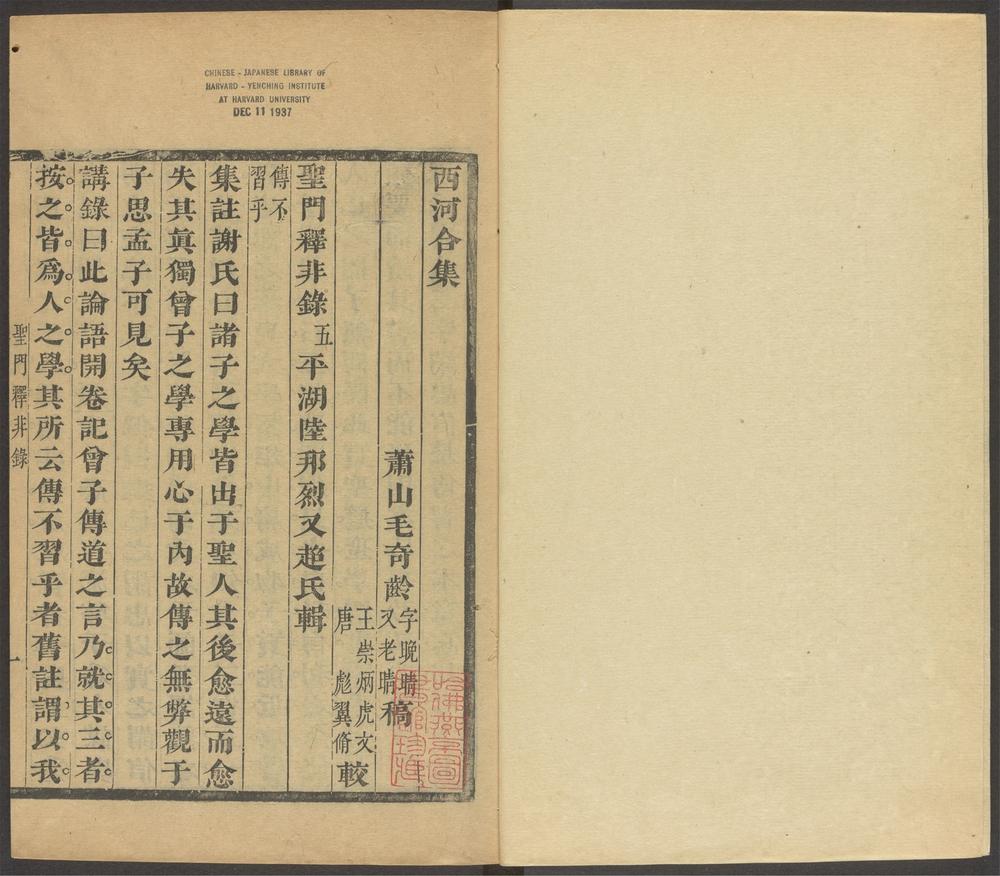 CHINESE - JAPANESE LIBRARY OF
HARVARD - YENCHING INSTITUTE
AT HARVARD UNIVERSITY
DEC 11 1937
西河合集
蕭山毛奇齡字晚晴又老晴稿
王崇炳虎文
唐彪翼脩較
聖門釋非錄五平湖陸邦烈又超氏輯
傳不
習乎
集註謝氏曰諸子之學皆出于聖人其後愈遠而愈
失其眞獨曾子之學專用心于內故傳之無弊觀于
子思孟子可見矣
講錄曰此論語開卷記曾子傳道之言乃。就。其。三。者。
按。之。皆。爲。人。之。學。其所云傳不習乎者舊註謂。以。我。
聖門釋非錄
一